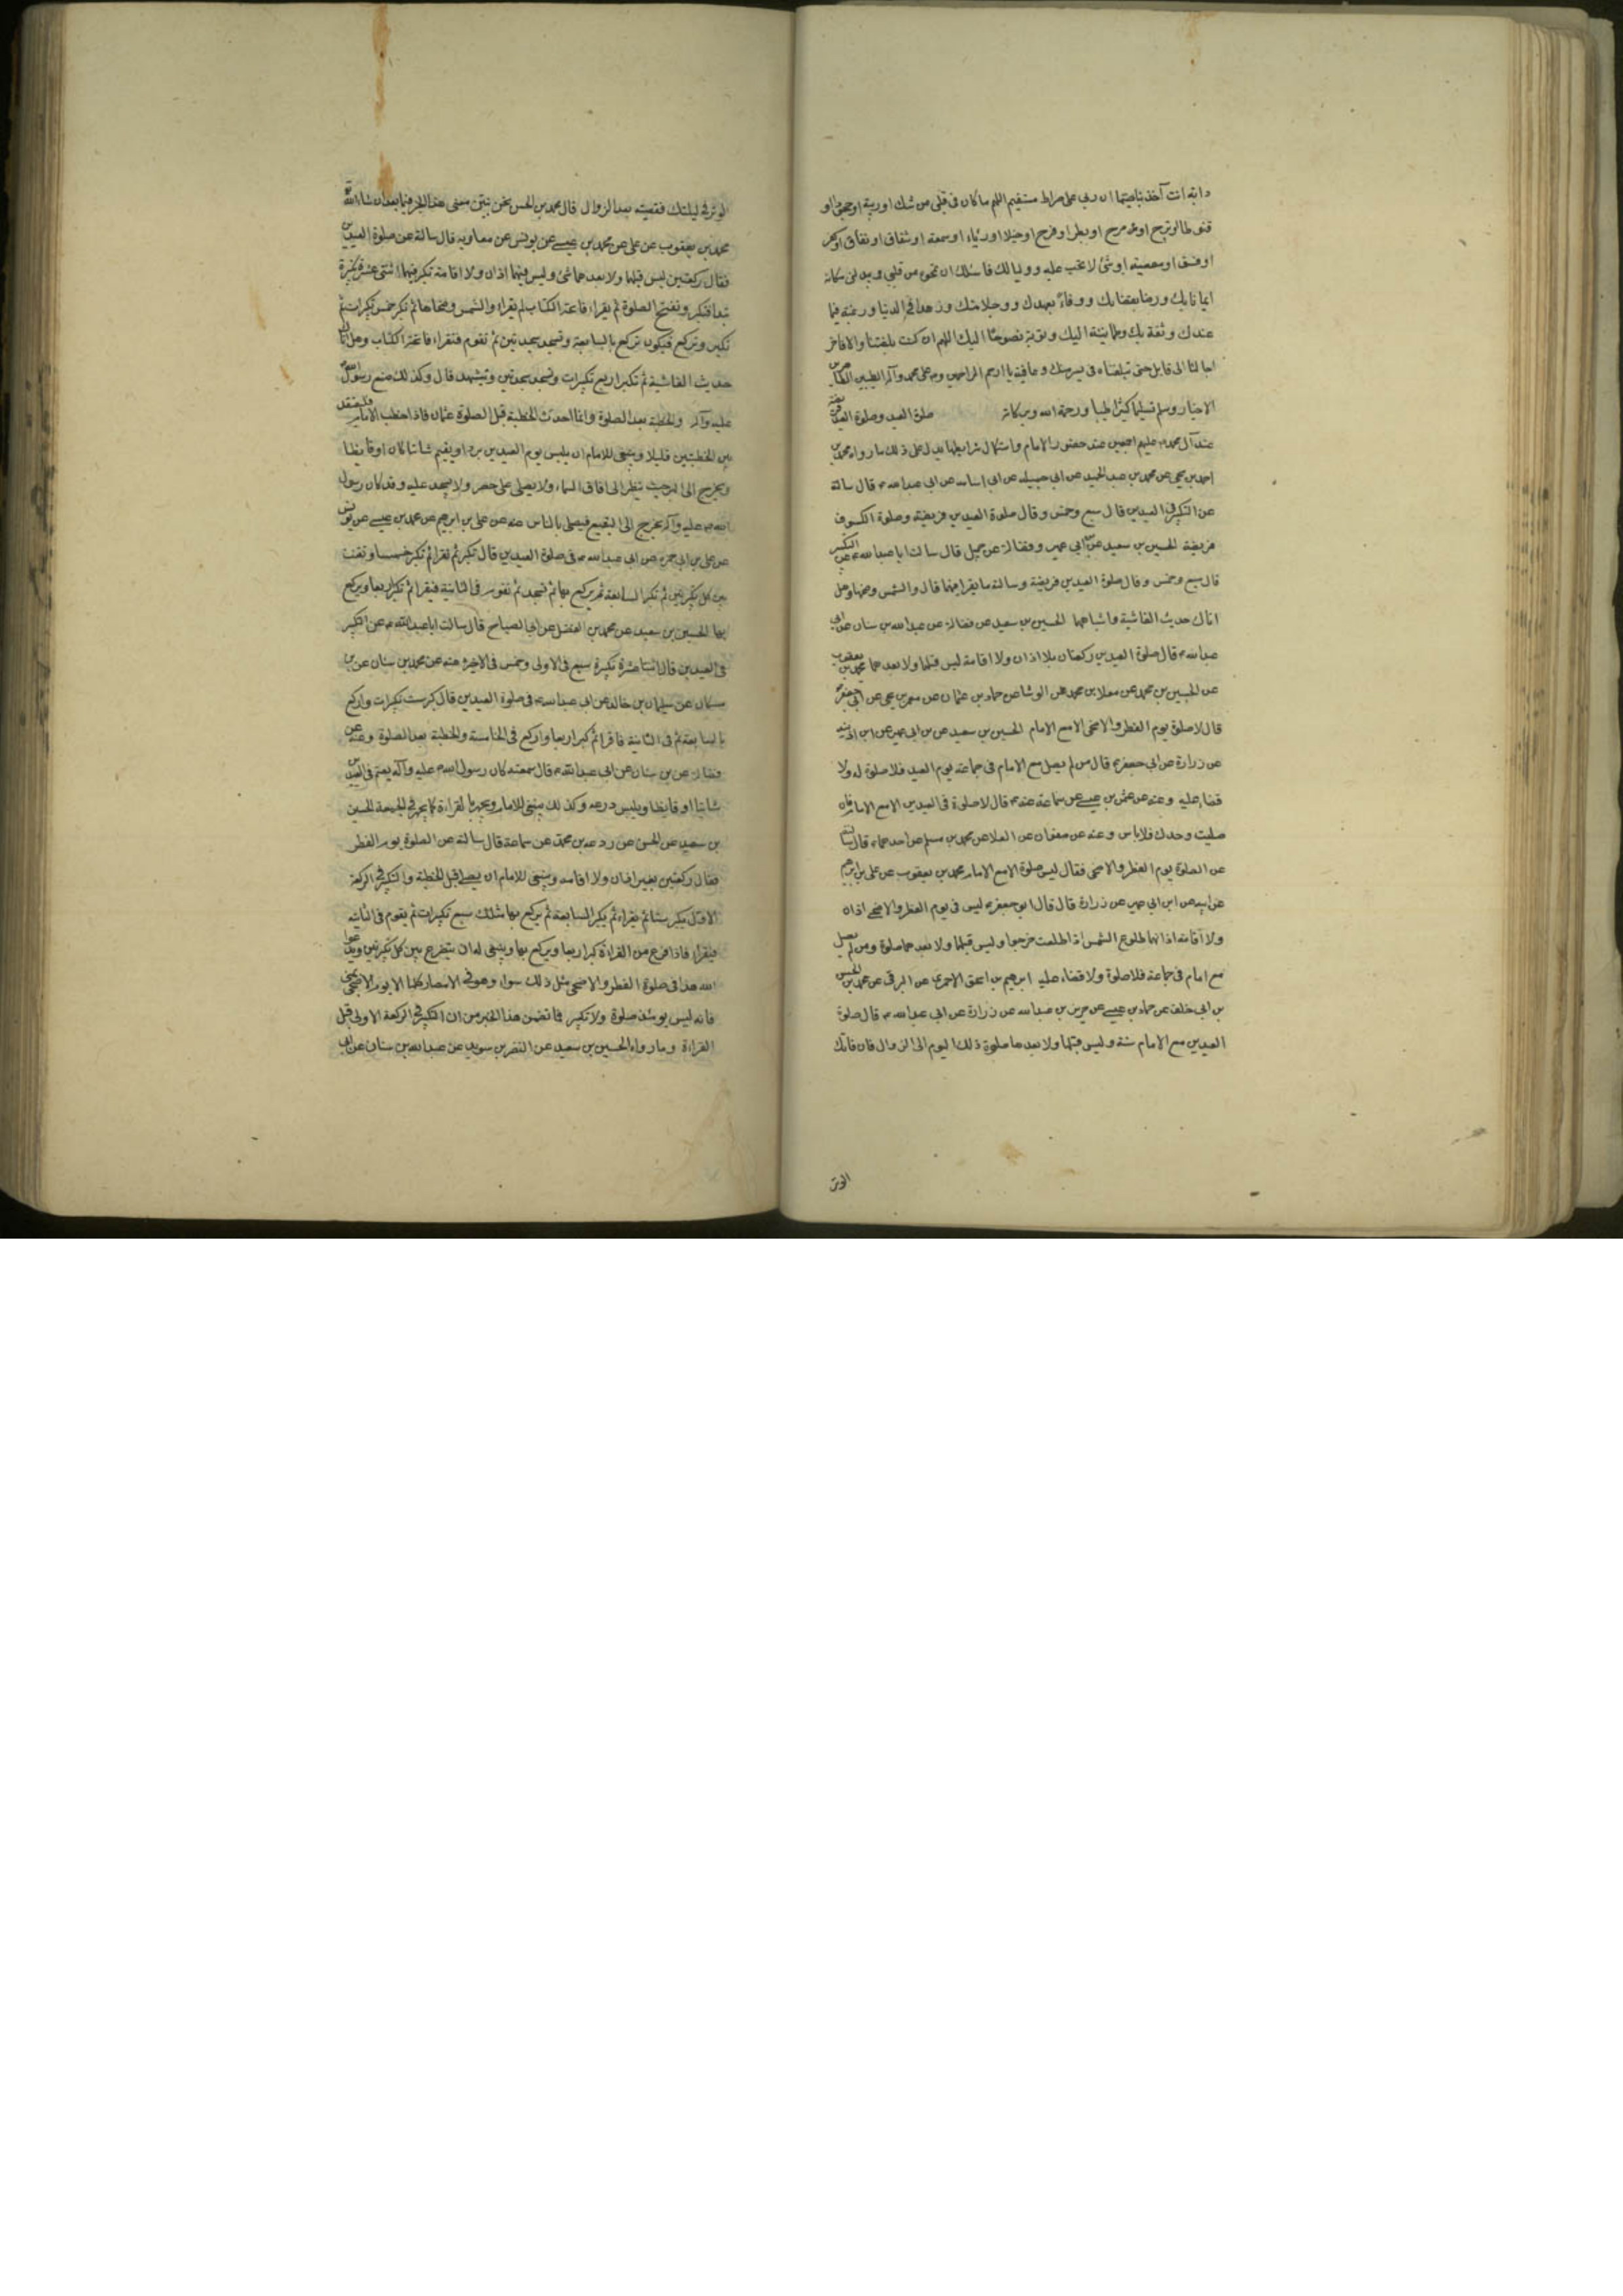 دابة انت آخذ بناصيتها ان ربي على صراط مستقيم اللهم ما كان في قلبي من شك او ريبة او جحود او
قنوط او ترح او مرح او بطر او فرح او خيلا او رياء او سمعة او شقاق او نفاق او كفر
او فسق او معصية او شئ لا تحب عليه وليا لك فاسئلك ان تمحوه من قلبي وتبدلني مكانه
ايمانا بك ورضا بقضائك ووفاءً بعهدك ووجلا منك وزهدا في الدنيا ورغبة فيما
عندك وثقة بك وطمانينة اليك وتوبة نصوحًا اليك اللهم ان كنت بلغتنا والا فاخر
اجالنا الى قابل حتى تبلغناه في يسر منك وعافية يا ارحم الراحمين وص على محمد وآله الطيبين الطاهرين
الاخيار وسلم تسليما كثيرًا طيبا ورحمة الله وبركاته صلوة العيد وصلوة العيد فريضة
عند آل محمد عليهم اجمعين عند حضور الامام واستكمال شرايطها يدل على ذلك ما رواه محمد بن
احمد بن يحيى عن محمد بن عبد الحميد عن ابي جميلة عن ابي اسامة عن ابي عبد الله ع قال سالته
عن التكبير في العيدين قال سبع وخمس وقال صلوة العيدين فريضة وصلوة الكسوف
فريضة الحسين بن سعيد عن ابي عمير وفضالة عن جميل قال سالت ابا عبد الله ع عن التكبير
قال سبع وخمس وقال صلوة العيدين فريضة وسالته ما يقرا فيهما قال والشمس وضحاها وهل
اتاك حديث الغاشية واشباهها الحسين بن سعيد عن فضالة عن عبد الله بن سنان عن ابي
عبد الله ع قال صلوة العيدين ركعتان بلا اذان ولا اقامة ليس قبلهما ولا بعدهما محمد بن يعقوب
عن الحسين بن محمد عن معلا بن محمد عن الوشا عن حماد بن عثمان عن معمر بن يحيى عن ابي جعفر ع
قال لا صلوة يوم الفطر والاضحى الا مع الامام الحسين بن سعيد عن بن ابي عمير عن ابن اذينه
عن زرارة عن ابي جعفر ع قال من لم يصل مع الامام في جماعة يوم العيد فلا صلوة له ولا
قضاء عليه وعنه عن عثمن بن عيسى عن سماعة عنه ع قال لا صلوة في العيدين الا مع الامام فان
صليت وحدك فلا باس وعنه عن صفوان عن العلا عن محمد بن مسلم عن احدهما ع قال سالته
عن الصلوة يوم الفطر والاضحى فقال ليس صلوة الا مع الامام محمد بن يعقوب عن على بن ابرهيم
عن ابيه عن ابن ابي عمير عن زرارة قال قال ابو جعفر ع ليس في يوم الفطر والاضحى اذان
ولا اقامة اذانهما طلوع الشمس اذا طلعت خرجوا وليس قبلهما ولا بعدهما صلوة ومن لم يصل
مع امام في جماعة فلا صلوة ولا قضاء عليه ابرهيم بن اسحق الاحمرى عن البرقى عن محمد بن الحسن
بن ابي خلف عن حماد بن عيسى عن حريز بن عبد الله عن زرارة عن ابي عبد الله ع قال صلوة
العيدين مع الامام سنة وليس قبلها ولا بعدها صلوة ذلك اليوم الى الزوال فان فاتك
الوتر
الوتر في ليلتك فقضيته بعد الزوال قال محمد بن الحسن نحن نبين معنى هذا الخبر فيما بعد ان شاء الله تع
محمد بن يعقوب عن على عن محمد بن عيسى عن يونس عن معاوية قال سالته عن صلوة العيدين
فقال ركعتين ليس قبلهما ولا بعدهما شئ وليس فيهما اذان ولا اقامة تكبر فيهما اثنتى عشرة تكبيرة
تبدا فتكبر وتفتتح الصلوة ثم يقراء فاتحة الكتاب ثم يقراء والشمس وضحاها ثم تكبر خمس تكبيرات ثم
تكبر وتركع فيكون تركع بالسابعة وتسجد سجدتين ثم تقوم فتقراء فاتحة الكتاب وهل اتاك
حديث الغاشية ثم تكبر اربع تكبيرات وتسجد سجدتين وتشهد قال وكذلك صنع رسول الله ص
عليه وآله والخطبة بعد الصلوة وانما احدث الخطبة قبل الصلوة عثمان فاذا خطب الامام فليقعد
بين الخطبتين قليلا وينبغى للامام ان يلبس يوم العيدين بردا ويعتم شاتيا كان او قايظا
ويخرج الى البر حيث ينظر الى افاق السماء ولا يصلى على حصر ولا يسجد عليه وقد كان رسول
الله ص عليه وآله يخرج الى البقيع فيصلى بالناس عنه عن على بن ابرهيم عن محمد بن عيسى عن يونس
عن على بن ابي حمزه عن ابي عبد الله ع في صلوة العيدين قال تكبر ثم تقرا ثم تكبر خمسا وتقنت
بين كل تكبيرتين ثم تكبر السابعة ثم يركع بها ثم تسجد ثم تقوم في الثانية فيقرا ثم تكبر اربعا ويركع
بها الحسين بن سعيد عن محمد بن الفضل عن ابي الصباح قال سالت ابا عبد الله ع عن التكبير
في العيدين قال اثنتا عشرة تكبيرة سبع في الاولى وخمس في الاخيرة عنه عن محمد بن سنان عن بن
مسكان عن سليمان بن خالد عن ابي عبد الله ع في صلوة العيدين قال كبر ست تكبيرات واركع
بالسابعة ثم في الثانية فاقرا ثم كبر اربعا واركع في الخامسة والخطبة بعد الصلوة وعنه عن
فضالة عن بن سنان عن ابي عبد الله ع قال سمعته كان رسول الله ص عليه وآله يعتم في العيدين
شاتيا او قايظا ويلبس درعه وكذلك ينبغى للامام ويجهر بالقراءة كما يجهر في الجمعة الحسين
بن سعيد عن الحسن عن زرعة بن محمد عن سماعة قال سالته عن الصلوة يوم الفطر
فقال ركعتين بغير اذان ولا اقامه وينبغى للامام ان يصلى قبل الخطبة والتكبير في الركعة
الاولى يكبر ستا ثم يقراء ثم يكبر السابعة ثم يركع بها فتلك سبع تكبيرات ثم يقوم في الثانيه
فيقراء فاذا فرغ من القراءة كبر اربعا ويركع بها وينبغى له ان يتضرع بين كل تكبيرتين ويدعوا
الله هذا في صلوة الفطر والاضحى مثل ذلك سواء وهو في الامصار كلها الا يوم الاضحى بمنى
فانه ليس يومئذ صلوة ولا تكبير فما تضمن هذا الخبر من ان التكبير في الركعة الاولى قبل
القراءة وما رواه الحسين بن سعيد عن النضر بن سويد عن عبد الله بن سنان عن ابي